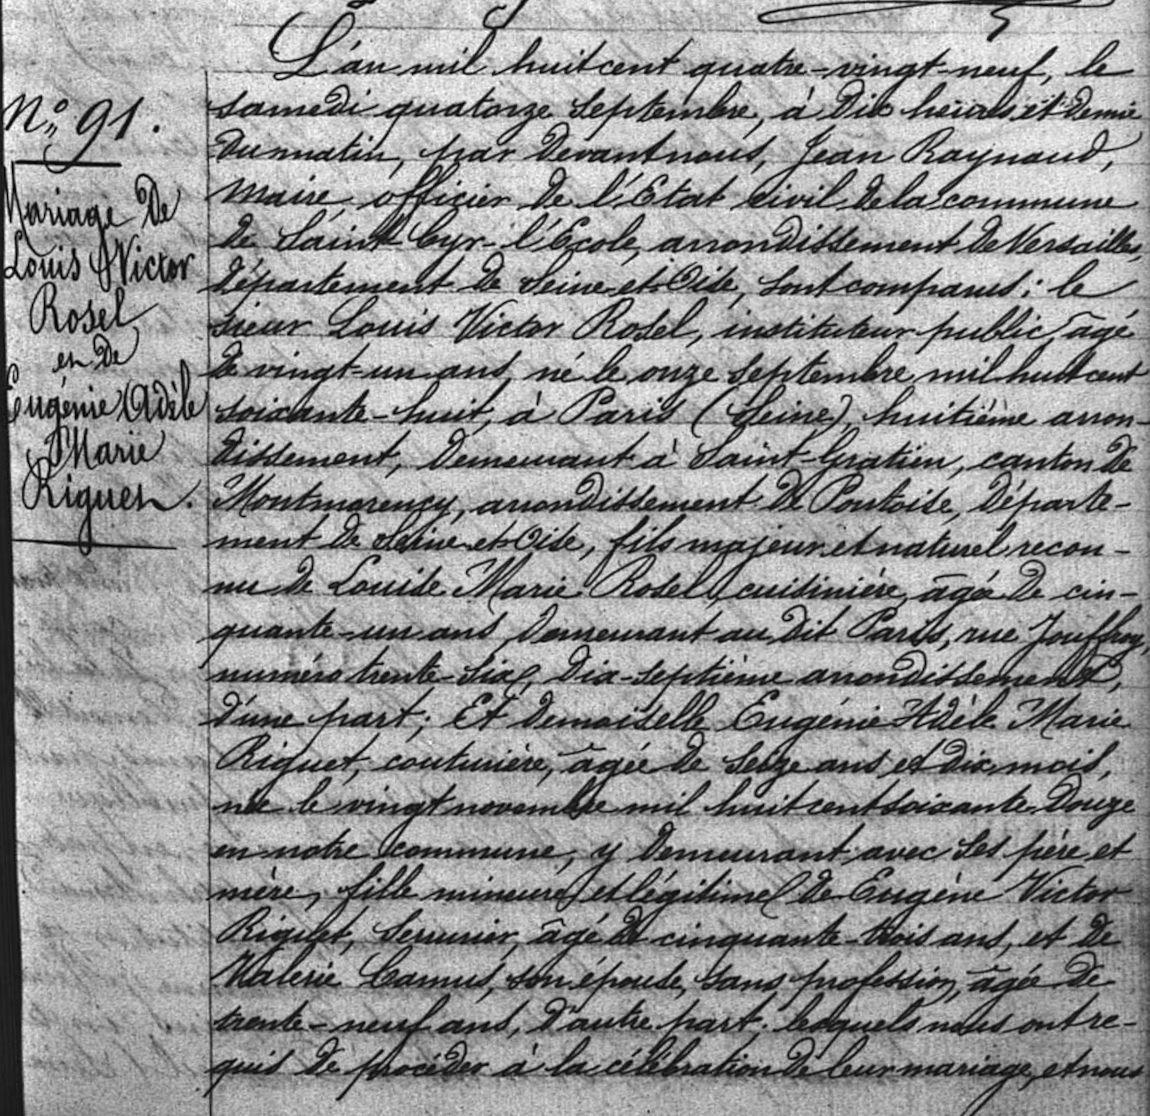 L'an mil huit cent quatre-vingt-neuf, le
samedi quatorze septembre, à dix heures et demie
du matin, par devant nous, Jean Raynaud,
maire, officier de l'Etat civil de la commune
de Saint Cyr-l'Ecole, arrondissement de Versailles,
département de Seine-et-Oise, sont comparus: le
sieur Louis Victor Rosel, instituteur public, âgé
de vingt-un ans, né le onze septembre mil huit cent
soixante-huit, à Paris (Seine), huitième arron-
dissement, demeurant à Saint-Gratien, canton de
Montmorency, arrondissement de Pontoise, départe-
ment de Seine-et-Oise, fils majeur et naturel recon-
nu de Louise Marie Rosel, cuisinière, âgée de cin-
quante-un ans, demeurant au dit Paris, rue Jouffroy,
numéro trente-six, dix-septième arrondissement,
d'une part; Et demoiselle Eugénie Adèle Marie
Riguet, couturière, âgée de seize ans et dix mois,
née le vingt novembre mil huit cent soixante-douze
en notre commune, y demeurant avec ses père et
mère, fille mineure et légitime de Eugène Victor
Riguet, serrurier, âgé de cinquante-trois ans, et de
Valerie Camus, son épouse, sans profession, âgée de
trente-neuf ans, d'autre part. lesquels nous ont re-
quis de procéder à la célébration de leur mariage, et nous
N° 91.
Mariage de
Louis Victor
Rosel
et de
Eugénie Adèle
Marie
Riguet.